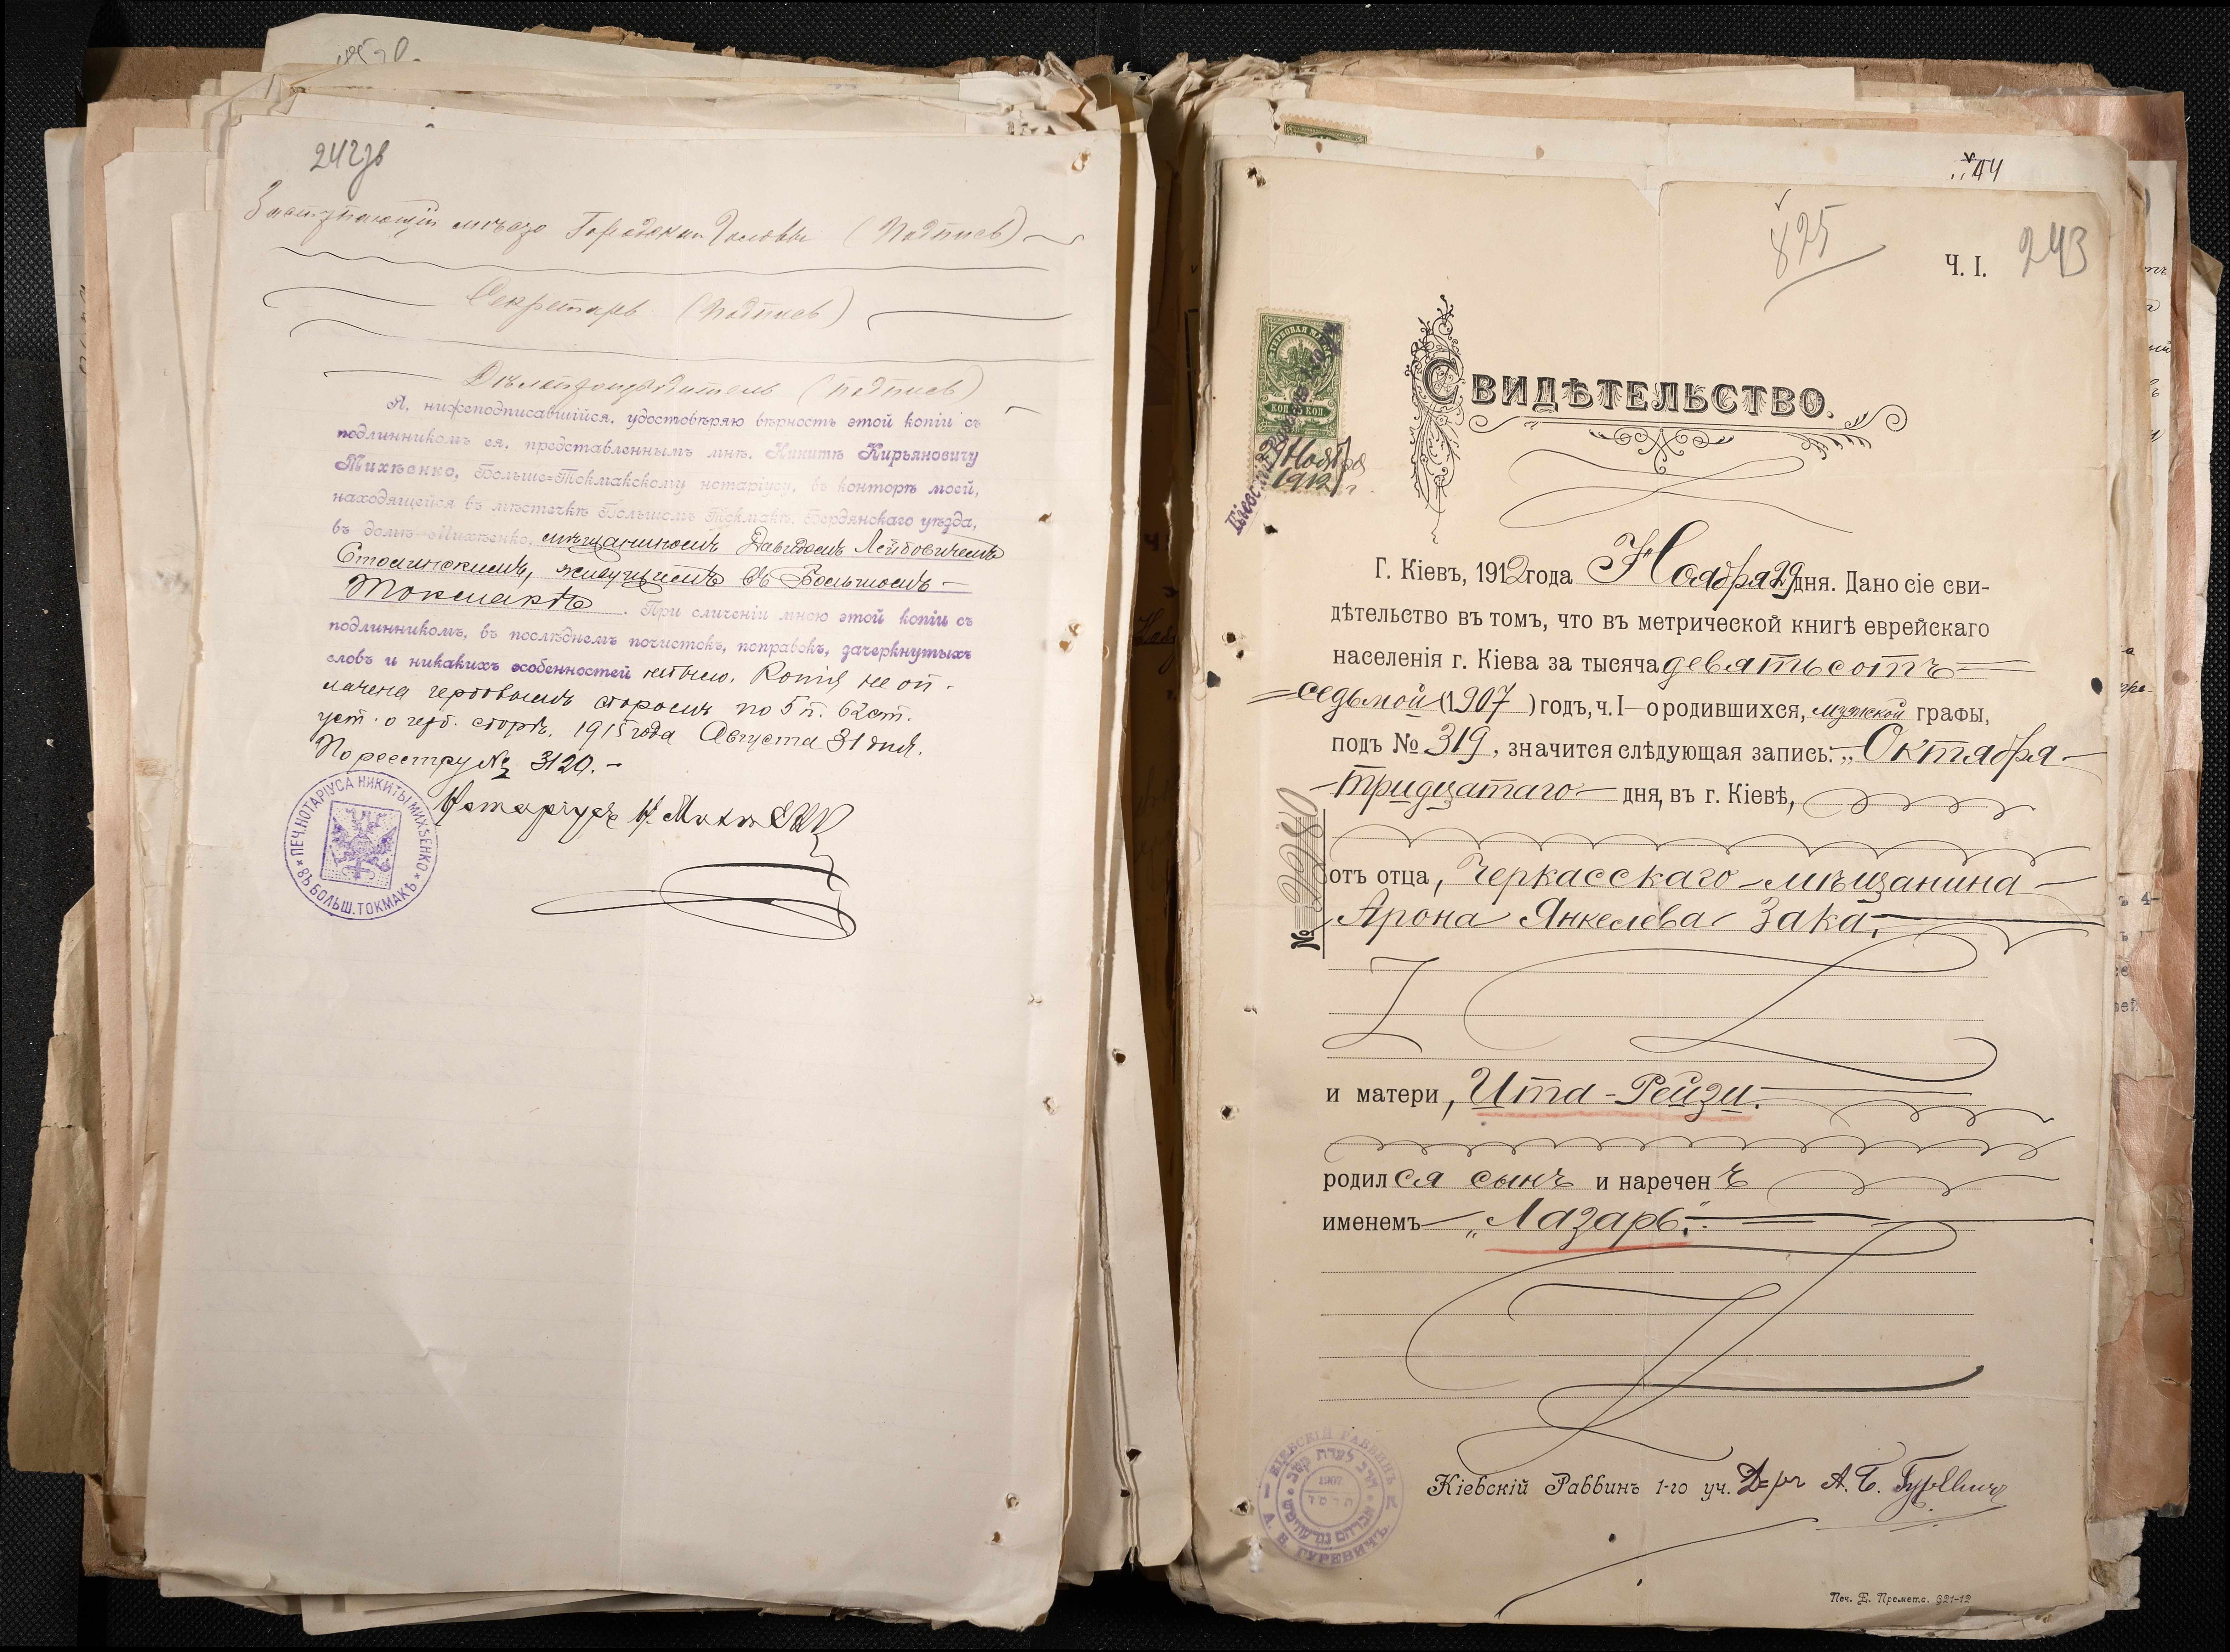 242 зв
Заступающій мѣсто Городского Головы (Подпись)
Секретарь (Подпись)
Дѣлопроизводитель (подпись)
Я, нижеподписавшійся, удостовѣряю вѣрность этой копіи съ
подлинникомъ ея, представленнымъ мнѣ, Никитѣ Кирьяновичу
Михѣенко, Больше-Токмакскому нотаріусу, въ конторѣ моей,
находящейся въ мѣстечкѣ Большомъ Токмакѣ, Бердянскаго уѣзда,
въ домѣ Михѣенко, мѣщаниномъ Давидомъ Лейбовичемъ
живущимъ въ Большомъ
Токмакѣ. При сличеніи мною этой копіи съ
подлинникомъ, въ послѣднемъ почистокъ, поправокъ, зачеркнутыхъ
словъ и никакихъ особенностей не было. Копія не оп-
лачена гербовымъ сборомъ по 5 п. 62 ст.
уст. о герб. сборѣ. 1915 года Августа 31 дня.
По реестру № 3120.
Нотаріусъ Н. Михѣенко
ПЕЧ. НОТАРІУСА НИКИТЫ МИХѢЕНКО
ВЪ БОЛЬШ. ТОКМАКѢ
44
825
Ч. I. 243
ГЕРБОВАЯ МАРКА
КОП КОП
Ноября
1912 г.
СВИДѢТЕЛЬСТВО.
Г. Кіевъ, 1912 года Ноября 29 дня. Дано сіе сви-
дѣтельство въ томъ, что въ метрической книгѣ еврейскаго
населенія г. Кіева за тысяча девятьсотъ
седьмой (1907) годъ, ч. I—о родившихся, мужской графы,
подъ № 319, значится слѣдующая запись: „Октября
тридцатаго дня, въ г. Кіевѣ,
№
отъ отца, Черкасскаго мѣщанина
Арона Янкелева Зака,
и матери, Ита-Рейзи.
родился сынъ и нареченъ
именемъ „Лазарь".
Кіевскій Раввинъ 1-го уч. Д-ръ А. Б. Гуревичъ
КІЕВСКІЙ РАВВИНЪ
1907
А. Б. ГУРЕВИЧЪ
Печ. 921-12